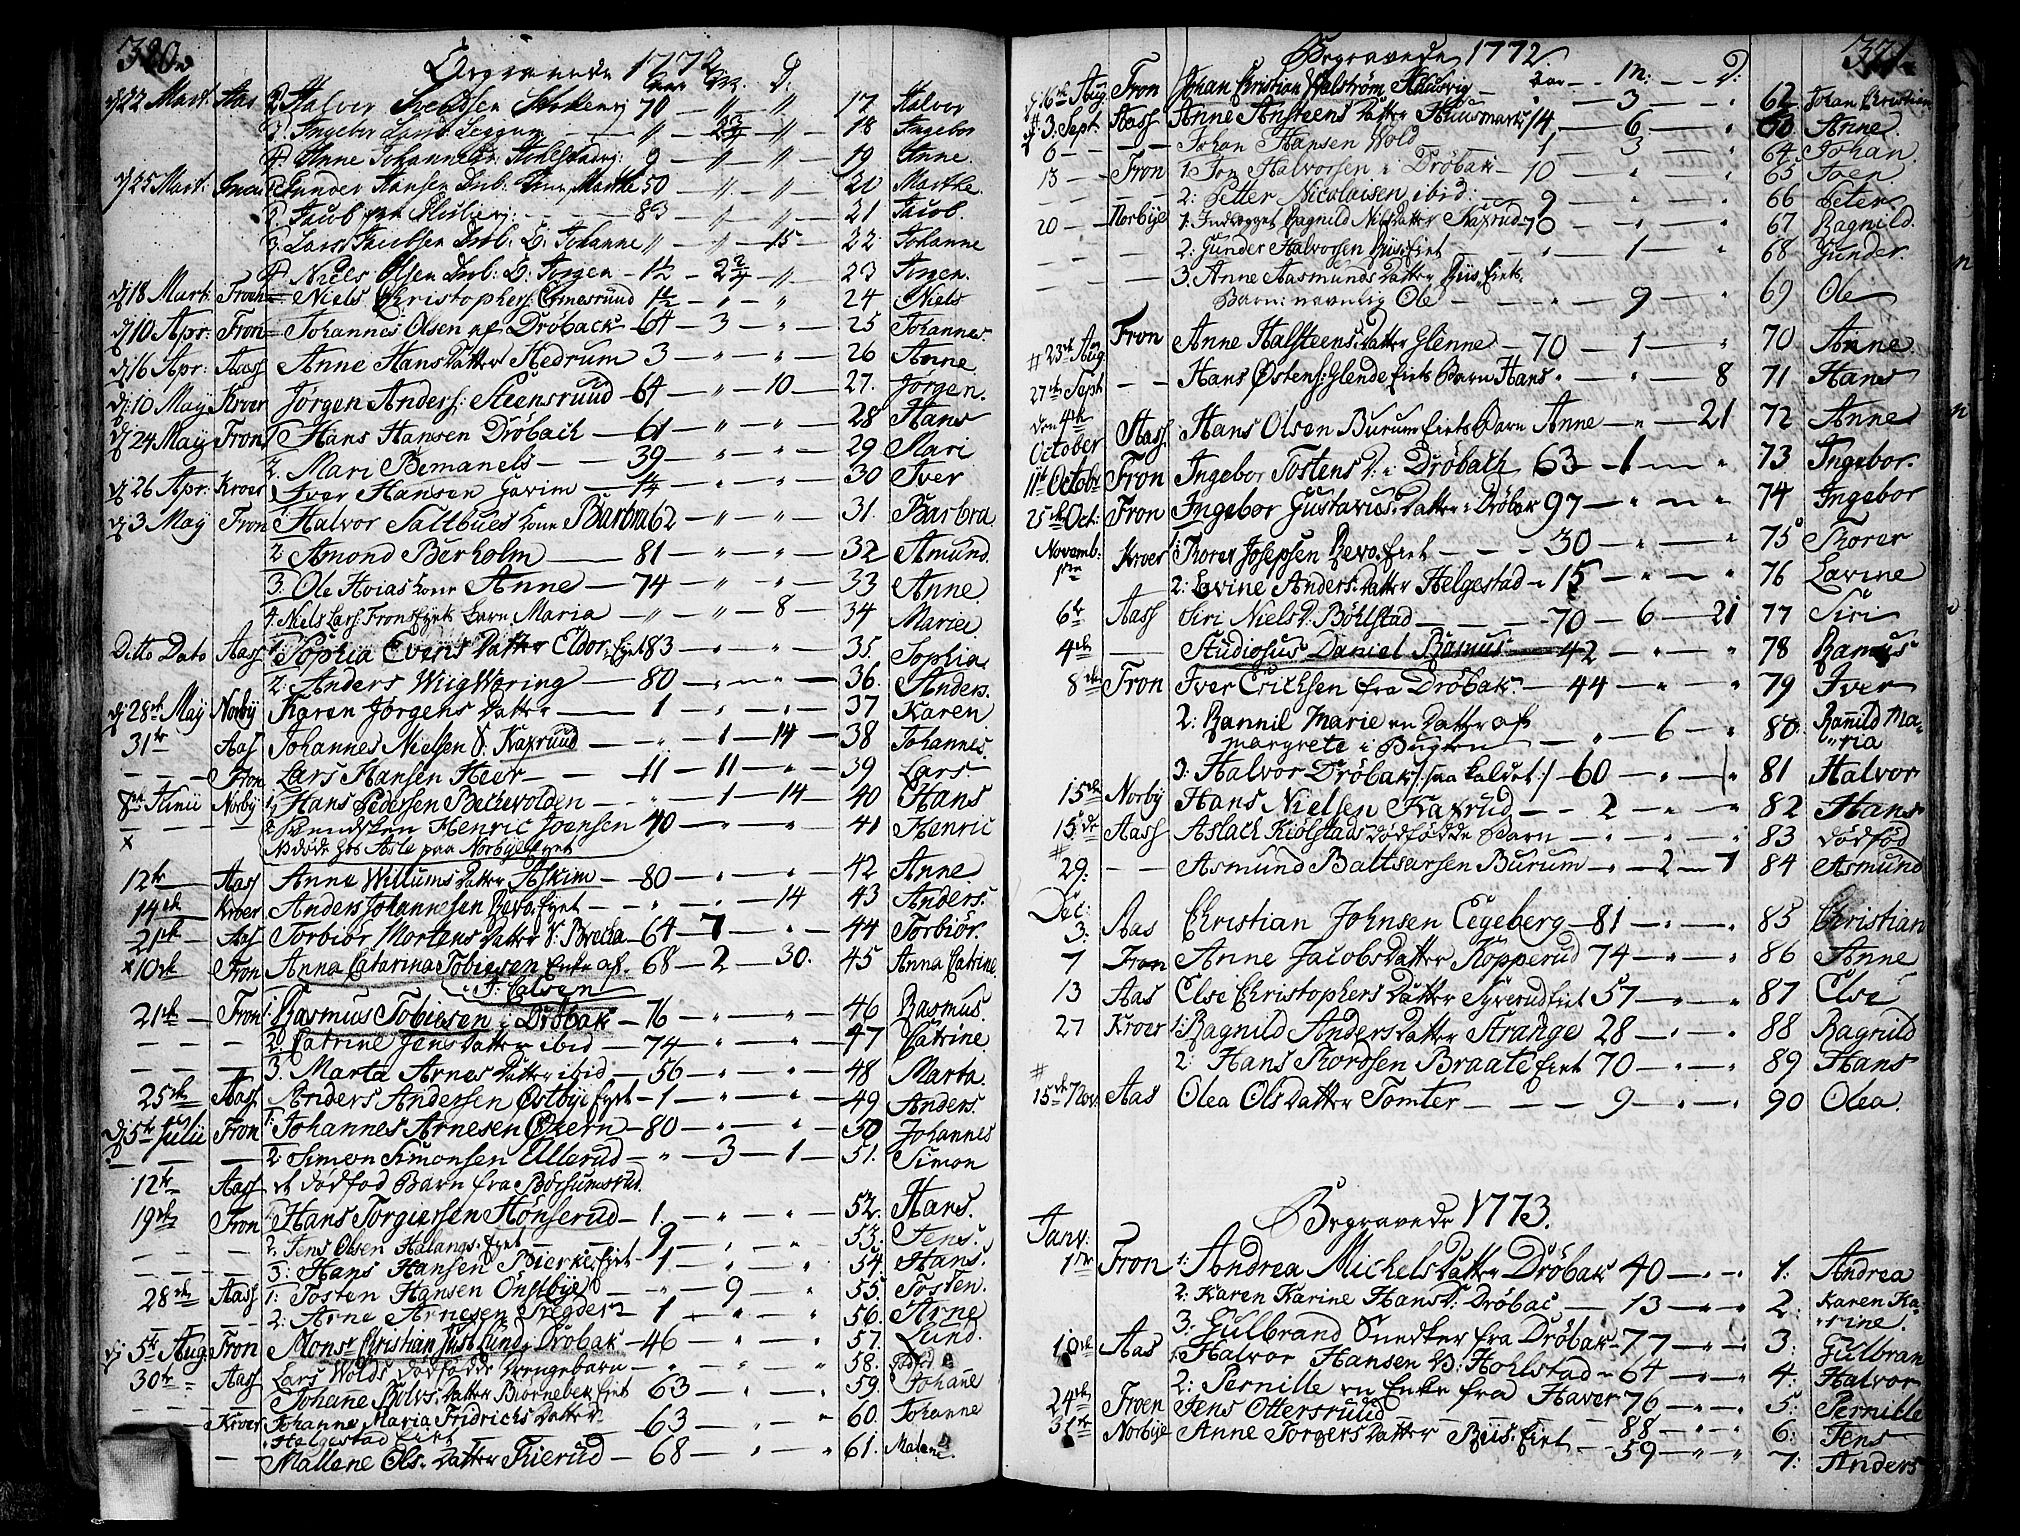 320
Begravede 1772
Aar M. D.
d 22 Mart: Aas 2. Halvor Svendsen 70 — " — " 17. Halvor
3. Ingebor Lars Leggum — " — 23/4 — " 18 Ingebor
4. Anne Johannesdr: Hohlstadvej: 9 — " — " 19. Anne
d 25 Mart: 1. Gunder Hansen Inb: Kone Marthe 50 — " — " 20 Marthe.
2. Jacob — 83 — " — " 21 Jacob.
3. Lars Jacobsen Inb: B. Johanne " — " — 15 — 22 Johanne
4. Niels Olsen Inb: B. Jorgen — 1½ — 2 2/4 — " 23
d 18 Mart: Froen Niels Christophers: Ermesruud 1½ — " — " 24 Niels
d 10 Apr: Fron Johannes Olsen af Drøback — 64 — 3 — " 25 Johannes.
d 16 Apr: Aass Anne Hans datter Hedrum 3 — " — " 26 Anne
d: 10 May Kroer Jørgen Anders: Steensruud — 64 — " — 10 — 27. Jørgen.
d 24 May Fron 1 Hans Hansen Drøbach — 61 — " — " 28 Hans
2. Mari Bemanels — 39 — " — " 29 Mari
d 26 Apr: Kroer Iver Hansen Garim — 14 — " — " 30 Iver
d 3 May Fron 1: Halvor Saltbues Kone Barbra 62 — " — " 31. Barbra
2: Amond Berholm — 81 — " — " 32 Amund.
3. Ole Hoias Kone Anne — 74 — " — " 33 Anne.
4. Niels Lars: Frons Eyet Barn Maria — " — " — 8 — 34 Mariei
Ditto Dato Aass 1: Sophia Evens datter Eldor: Eyet 83 — " — " 35 Sophia
2. Anders Wiig Woring — 80 — " — " 36. Anders.
d 28de May Norby Karen Jørgens datter — 1 — " — " 37 Karen
31te Aass Johannes Nielsen S: Kaxruud — " — 1 — 14 — 38 Johannes.
— — — Fron Lars Hansen Heer — 11 — 11 — " 39 Lars
8de Junii Norby 1. Hans Pedersen Beckevolden — " — 1 — 14 — 40 Hans
x 2. Henric Joensen 40 — " — " 41 Henric
NB døde hos Asle paa Norbye Eyet
12te Aass Anne Willums datter Askim — 80 — " — " 42 Anne
14de Kroer Anders Johannesen Revo: Eyet — " — " — 14 43 Anders.
21de Aas Torbiør Mortens datter S: Brecha — 64 — 7 — " 44 Torbiør.
x 10de Fron Anna Catarina Tobiesen Enke af — 68 — 2 — 30. 45 Anna Catrine.
21de Fron 1: Rasmus Tobiesen i Drøbak — 76 — " — " 46 Rasmus.
— — — 2. Catrine Jens datter ibid — 74 — " — " 47 Catrine.
— — — 3. Marta Arnes datter ibid — 56 — " — " 48 Marta.
25de Aass Anders Andersen Østbye Eyet — 1 — " — " 49 Anders.
d 5te Julii Fron 1: Johannes Arnesen Økern — 80 — " — " 50 Johannes
— — — 2: Simon Simonsen Ullerud — " — 3 — 1 — 51. Simon
12te Aass et dødfød Barn fra
19de Fron 1. Hans Torgiersen Hønserud — 1. — " — " 52. Hans.
— — — 2: Jens Olsen Halangs. Eyet — 9 — " — " 53. Jens.
— — — 3: Hans Hansen Bierke: Eiet 1 — " — " 54. Hans.
28de Aass 1: Tosten Hansen Onsbye — " — 9 — " 55. Tosten.
2: Arne Arnesen — 1 — " — " 56. Arne
d 5te Aug. Fron Monsr Christian Just Lund i Drøbak — 46 — " — " 57. Lund.
30te Aass Lars Wolds dødfødde Drengebarn — " — " — " 58.
Johane datter Biørnebek Eiet 63 — " — " 59. Johane
Kroer Johanne Maria Fridrichs datter 63 — " — " 60. Johanne
Helgestad Eiet
— — Mallene Ols: datter — 68 — " — " 61. Malene
321.
Begravede 1772.
Aar — M: — D:
d 16de Aug Fron Johan Christian — " — 3 — " 62 Johan Christian
d 3. Sept. Aass Anne Ansteens datter Huusmarks 14 — 6 — " Anne.
6 — — — Johan Hansen Wold 1 — 3 — " 64 Johan.
13 — — Fron 1: Jon Halvorsen i Drøbak — 10 — " — " 65 Joen
2: Petter Nicolaisen ibid: — 9 — " — " 66 Peter
20 — Norbye 1. Ragnild Nilsdatter Kaxrud — 70 — " — " 67 Ragnild.
— — — 2: Gunder Halvorsen Riis: Eiet — " — 1 — " 68 Gunder.
— — — 3. Anne Aasmunds datter Riis: Eiets
Barn: navnlig Ole — " — 9 — " 69 Ole
# 23de Aug Fron Anne Halsteens: datter Glenne — 70 — 1 — " 70 Anne.
27de Sept — — Hans Østens: Glende Eiets Barn Hans " — " — 8 71 Hans
den 4de October Aass. Hans Olsen Burum Eiets Barn Anne — " — 21 72 Anne
11te Octobr Fron Ingebor Tostens D: i Drøbach 63 — 1 — " 73 Ingebor.
25de Oct: Fron Ingebor Gustavus: datter i Drøbak 97 — " — " 74 Ingebor
Novemb. 1ste Kroer 1: Thorer Josephsen Revo: Eiet — 30 — " — " 75 Thorer
2: Lavine Anders: datter Helgestad — 15 — " — " 76 Lavine
6te Aass Siri Niels D: Bøhlstad — 70 — 6 — 21 77 Siri
4de — Studiosus Daniel Rasmus — 42 — " — " 78 Ramus
8de Fron Iver Erichsen fra Drøbak — 44 — " — " 79 Iver
2: Rannil Marie en datter af
margrete i — " — 6 — " 80. Rañild Ma-
"ria
3: Halvor Drøbak /: saa kaldet :/ — 60 — " — 81 Halvor
15de Norby Hans Nielsen Kaxrud — 2 — " — " 82 Hans
15de Aass Aslach Kiølstads dødfødde Barn — " — " — " 83 Dødfød
#
29. — — Asmund Baltsarsen Burum — " — 2 — 7 84 Asmund
Dec: 3: Aas Christian Johnsen Eegeberg — 81 — " — " 85 Christian
7 Fron Anne Jacobs datter Kopperud 74 — " — " 86 Anne
13 Aas Else Christophers datter Eiet 57 — " — " 87 Else
27 Kroer 1: Ragnild Anders datter Strange 28 — " — " 88 Ragnild
2: Hans Thorosen Braate Eiet 70 — " — " 89 Hans
#
15de Nov. Aas Olea Ols datter Tomter — 9 — " — " 90 Olea.
Begravede 1773.
Janv: 1ste Fron 1: Andrea Michels datter Drøbak 40 — " — " 1: Andrea
2: Karen Karine Hans D: Drøbac — 13 — " — " 2: Karen Ka-
"rine.
3: Gulbrand Snedker fra Drøbak — 77 — " — " 3: Gulbran
10de Aas 1: Halvor Hansen V: Hohlstad — 64 — " — " 4: Halvor
2: Pernille en Enke fra Haver 76 — " — " 5: Pernille
24de Froen Jens Ottersruud — 88 — " — " 6: Jens
31te Norbye Anne Torgers datter Riis: Eiet — 59 — " — " 7: Anders